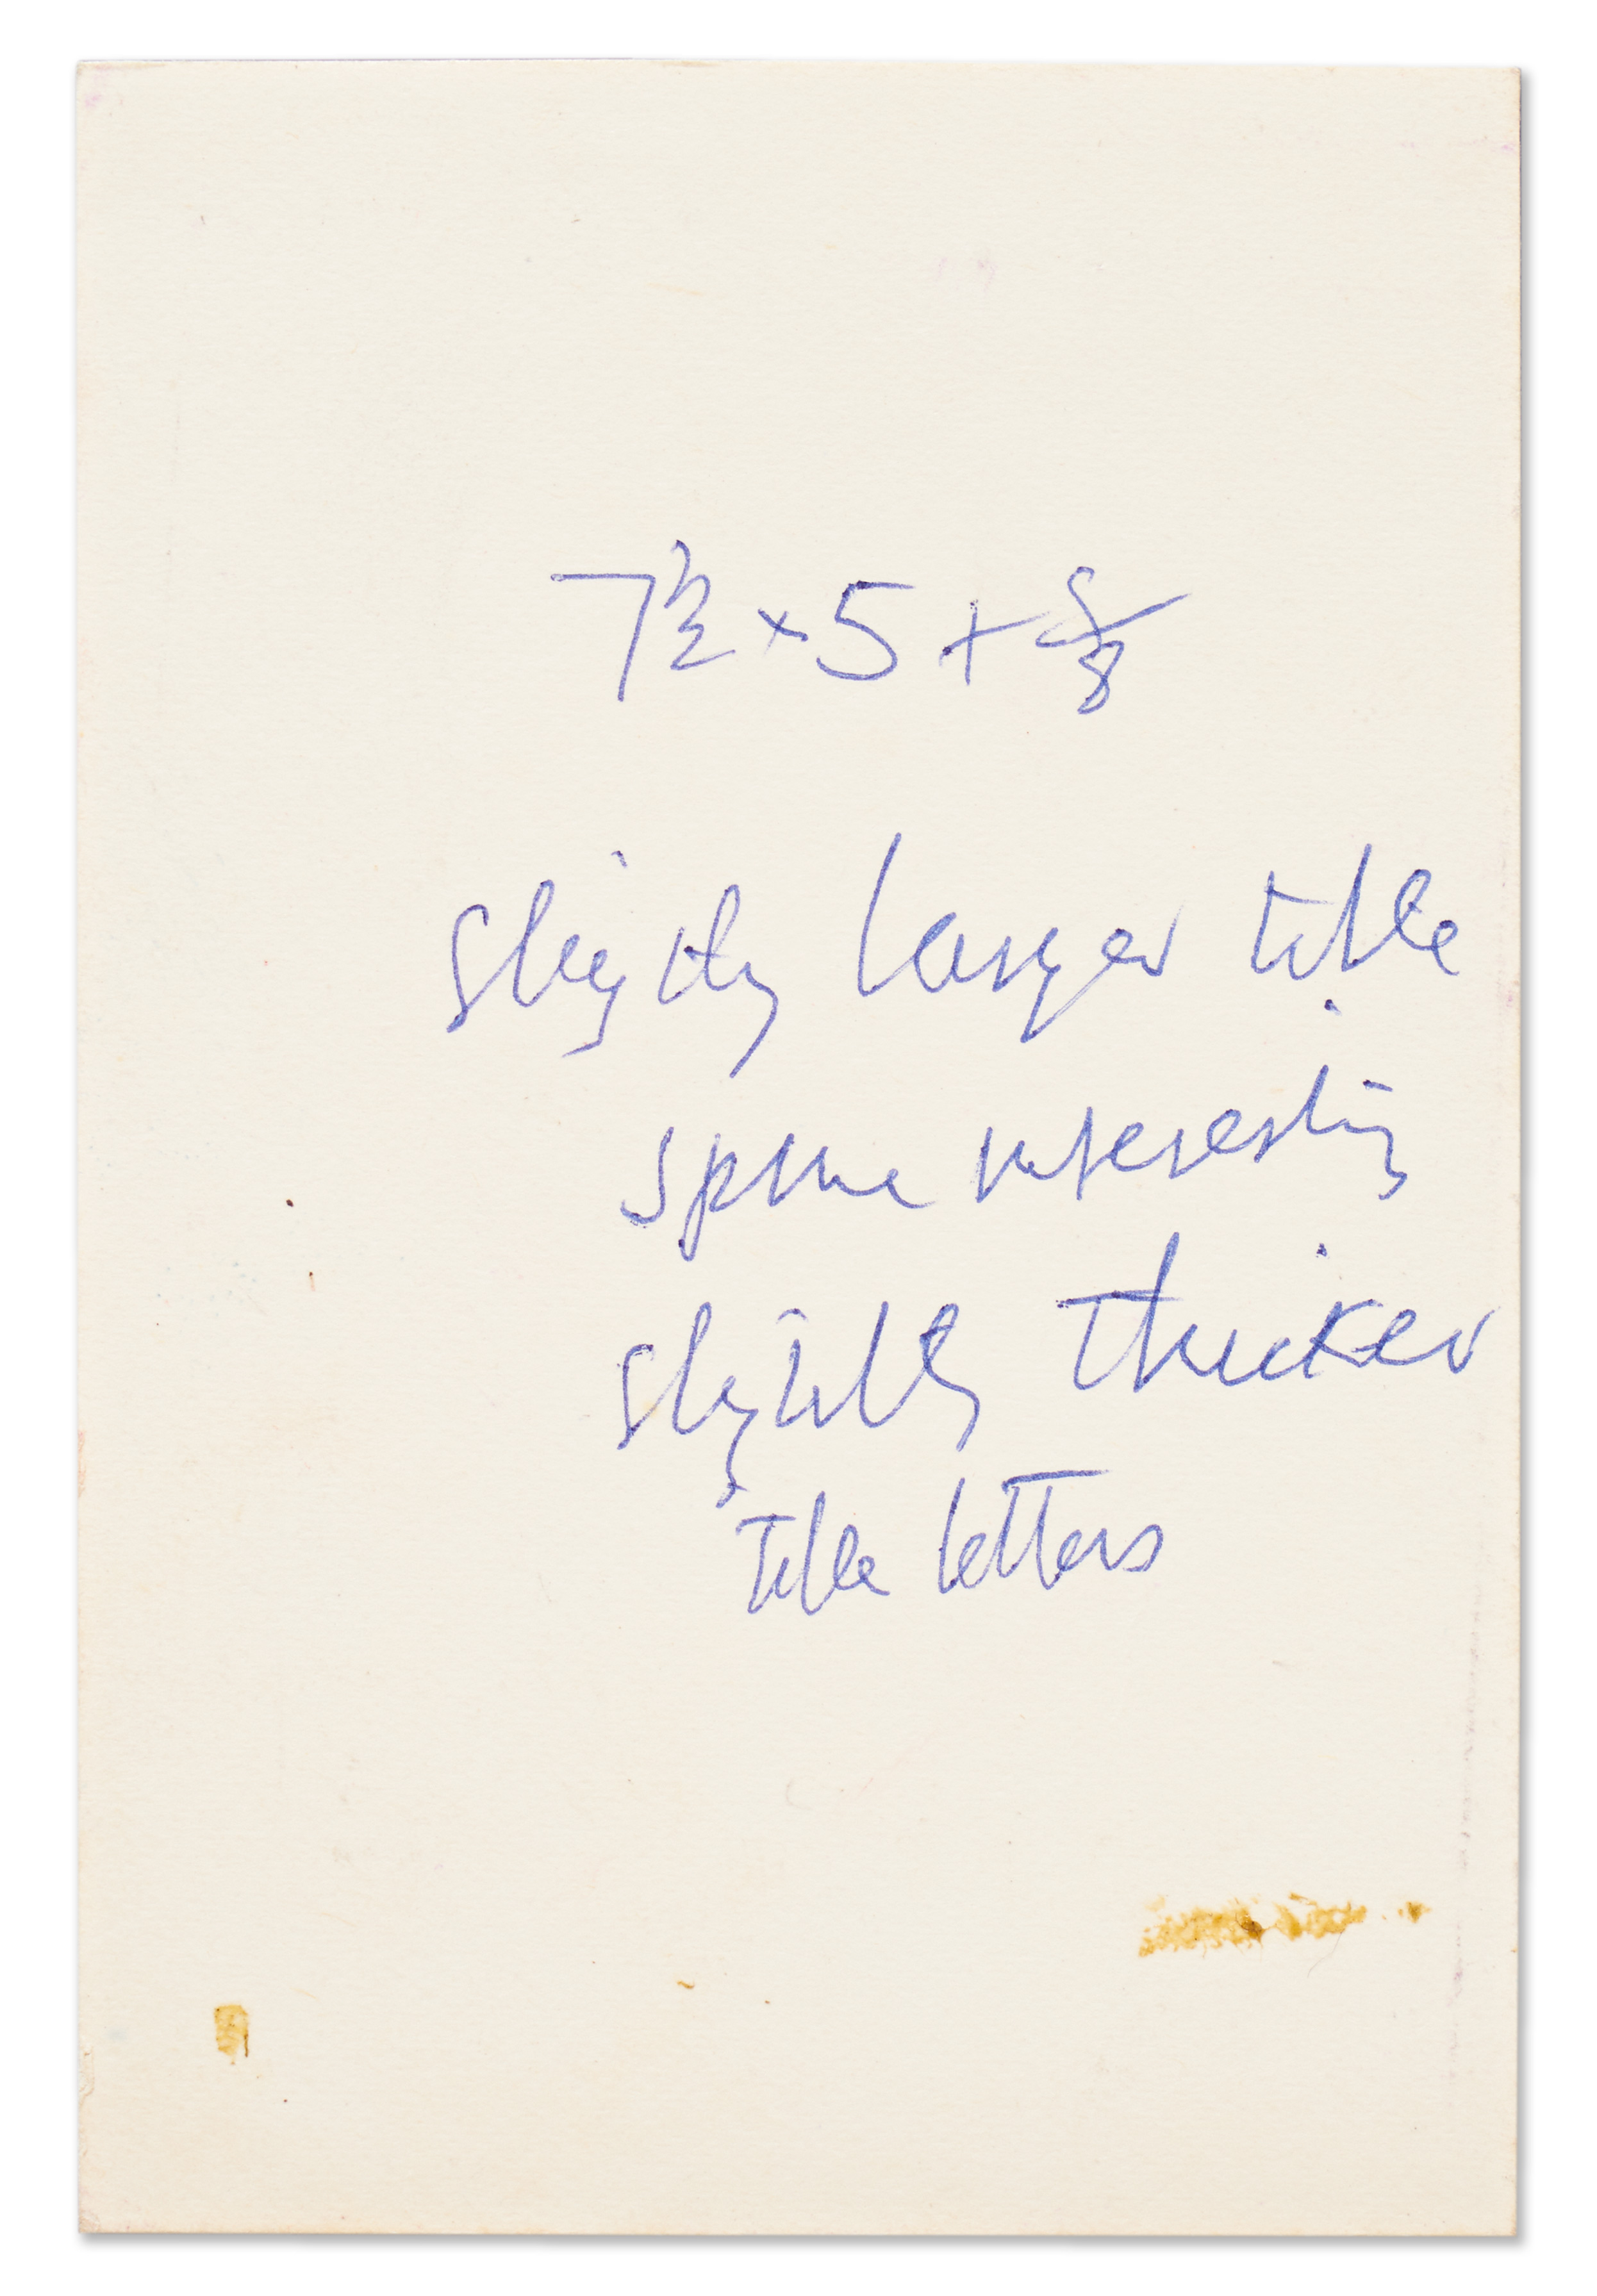 7½ × 5 + 5/8
slightly larger title
spine interesting
slightly thicker
title letters